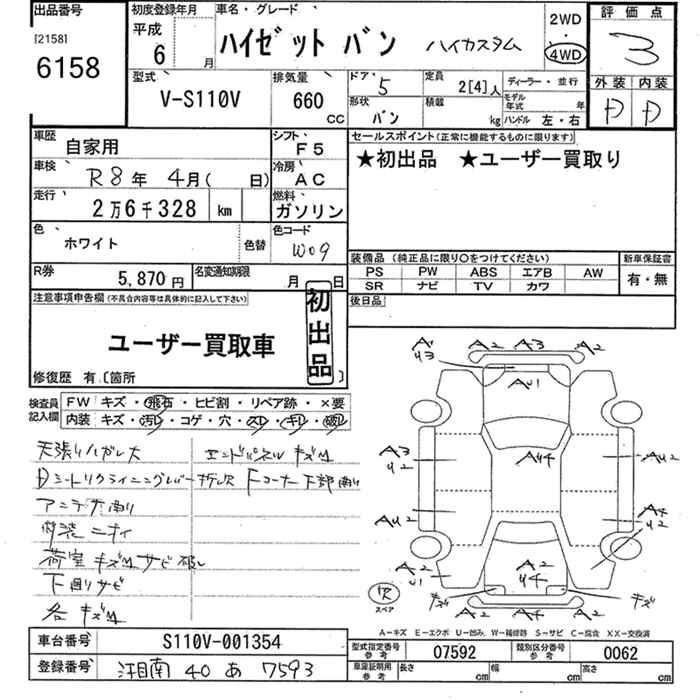 出品番号
[2158]
6158
初度登録年月
平成
6 月
車名・グレード
ハイゼット バン ハイカスタム
2WD
・
4WD
評価点
3
外装 内装
D D
型式
V-S110V
排気量
660
CC
ドア
5
定員
2[4]人
形状
バン
積載
kg
ディーラー・並行
モデル年式 年
ハンドル 左・右
車歴
自家用
シフト
F5
車検
R8年 4月( 日)
冷房
AC
走行
2万6千328 km
燃料
ガソリン
色
ホワイト
色替
色コード
W09
R券
5,870円
名変通知期限
月 日
セールスポイント(正常に機能するものに限ります)
★初出品 ★ユーザー買取り
装備品 (純正品に限り○をつけてください)
PS PW ABS エアB AW
SR ナビ TV カワ
新車保証書
有・無
後日品
注意事項申告欄(不具合内容等は具体的に記入して下さい)
初出品
ユーザー買取車
修復歴 有〔箇所
検査員記入欄
FW キズ・飛石・ヒビ割・リペア跡・×要
内装 キズ・汚レ・コゲ・穴・スレ・キレ・破レ
天張りハガレ大
Dシートリクライニングレバー折レ
アンテナ曲り
内装ニオイ
荷室キズ凹サビ破レ
下回りサビ
各キズ凹
エンドパネルキズ凹
Fコーナー下部曲り
A1
U3
A2 A3 A2
AU1
A3
U2
AU4
AU2
AU2
A4
U2
A2
U1
A2
U4
A2
キズ
キズ
A2 A4 A2
スペア
A-キズ E-エクボ U-凹み W-補修跡 S-サビ C-腐食 XX-交換済
車台番号
S110V-001354
登録番号
湘南 40 あ 7593
型式指定番号
参考
07592
類別区分番号
参考
0062
車庫証明用
参考
長さ cm
幅 cm
高さ cm